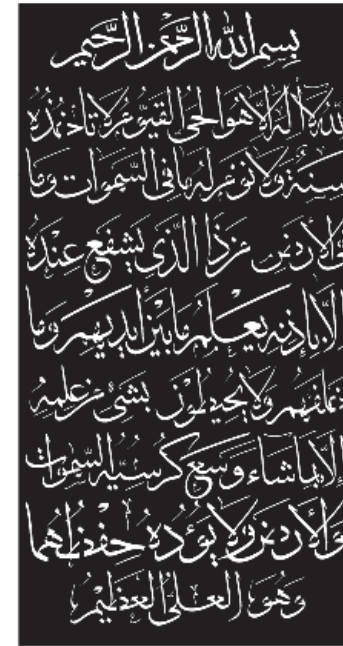 بسم الله الرحمن الرحيم
الله لا إله إلا هو الحي القيوم لا تأخذه
سنة ولا نوم له ما في السموات وما
في الأرض من ذا الذي يشفع عنده
إلا بإذنه يعلم ما بين أيديهم وما
خلفهم ولا يحيطون بشئ من علمه
إلا بما شاء وسع كرسيه السموات
والأرض ولا يؤده حفظهما
وهو العلي العظيم